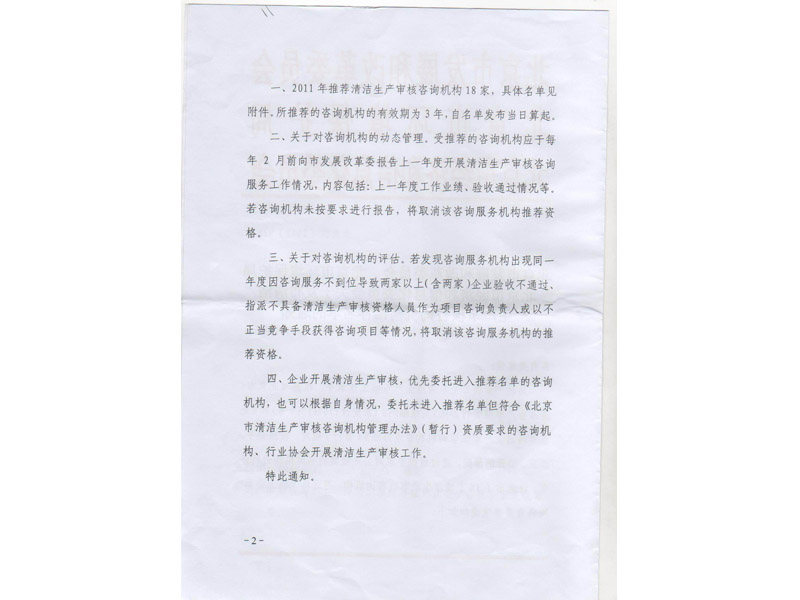 一、2011年推荐清洁生产审核咨询机构18家，具体名单见
附件。所推荐的咨询机构的有效期为3年，自名单发布当日算起。
二、关于对咨询机构的动态管理。受推荐的咨询机构应于每
年2月前向市发展改革委报告上一年度开展清洁生产审核咨询
服务工作情况，内容包括：上一年度工作业绩、验收通过情况等。
若咨询机构未按要求进行报告，将取消该咨询服务机构推荐资
格。
三、关于对咨询机构的评估。若发现咨询服务机构出现同一
年度因咨询服务不到位导致两家以上（含两家）企业验收不通过、
指派不具备清洁生产审核资格人员作为项目咨询负责人或以不
正当竞争手段获得咨询项目等情况，将取消该咨询服务机构的推
荐资格。
四、企业开展清洁生产审核，优先委托进入推荐名单的咨询
机构，也可以根据自身情况，委托未进入推荐名单但符合《北京
市清洁生产审核咨询机构管理办法》（暂行）资质要求的咨询机
构、行业协会开展清洁生产审核工作。
特此通知。
－2－